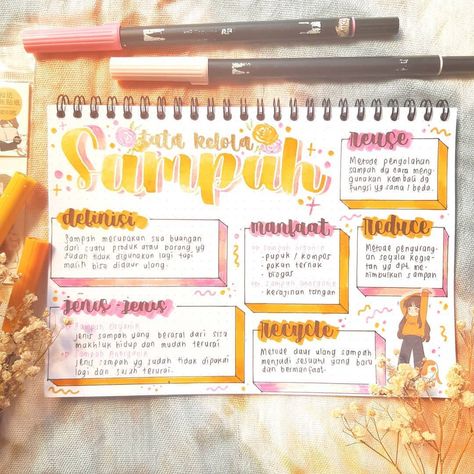 tata kelola
Sampah
definisi
Sampah merupakan sisa buangan
dari suatu produk atau barang yg
sudah tidak digunakan lagi tapi
masih bisa didaur ulang.
jenis-jenis
Sampah Organik
jenis sampah yang berasal dari sisa
makhluk hidup dan mudah terurai
Sampah Anorganik
jenis sampah yg sudah tidak dipakai
lagi dan sulit terurai.
manfaat
sampah organik
- pupuk / kompos
- pakan ternak
- biogas
sampah anorganik
- kerajinan tangan
recycle
Metode daur ulang sampah
menjadi sesuatu yang baru
dan bermanfaat.
reuse
Metode pengolahan
sampah dg cara meng-
gunakan kembali dg
fungsi yg sama / beda.
reduce
Metode pengurang-
an segala kegia-
tan yg dpt me-
nimbulkan sampah